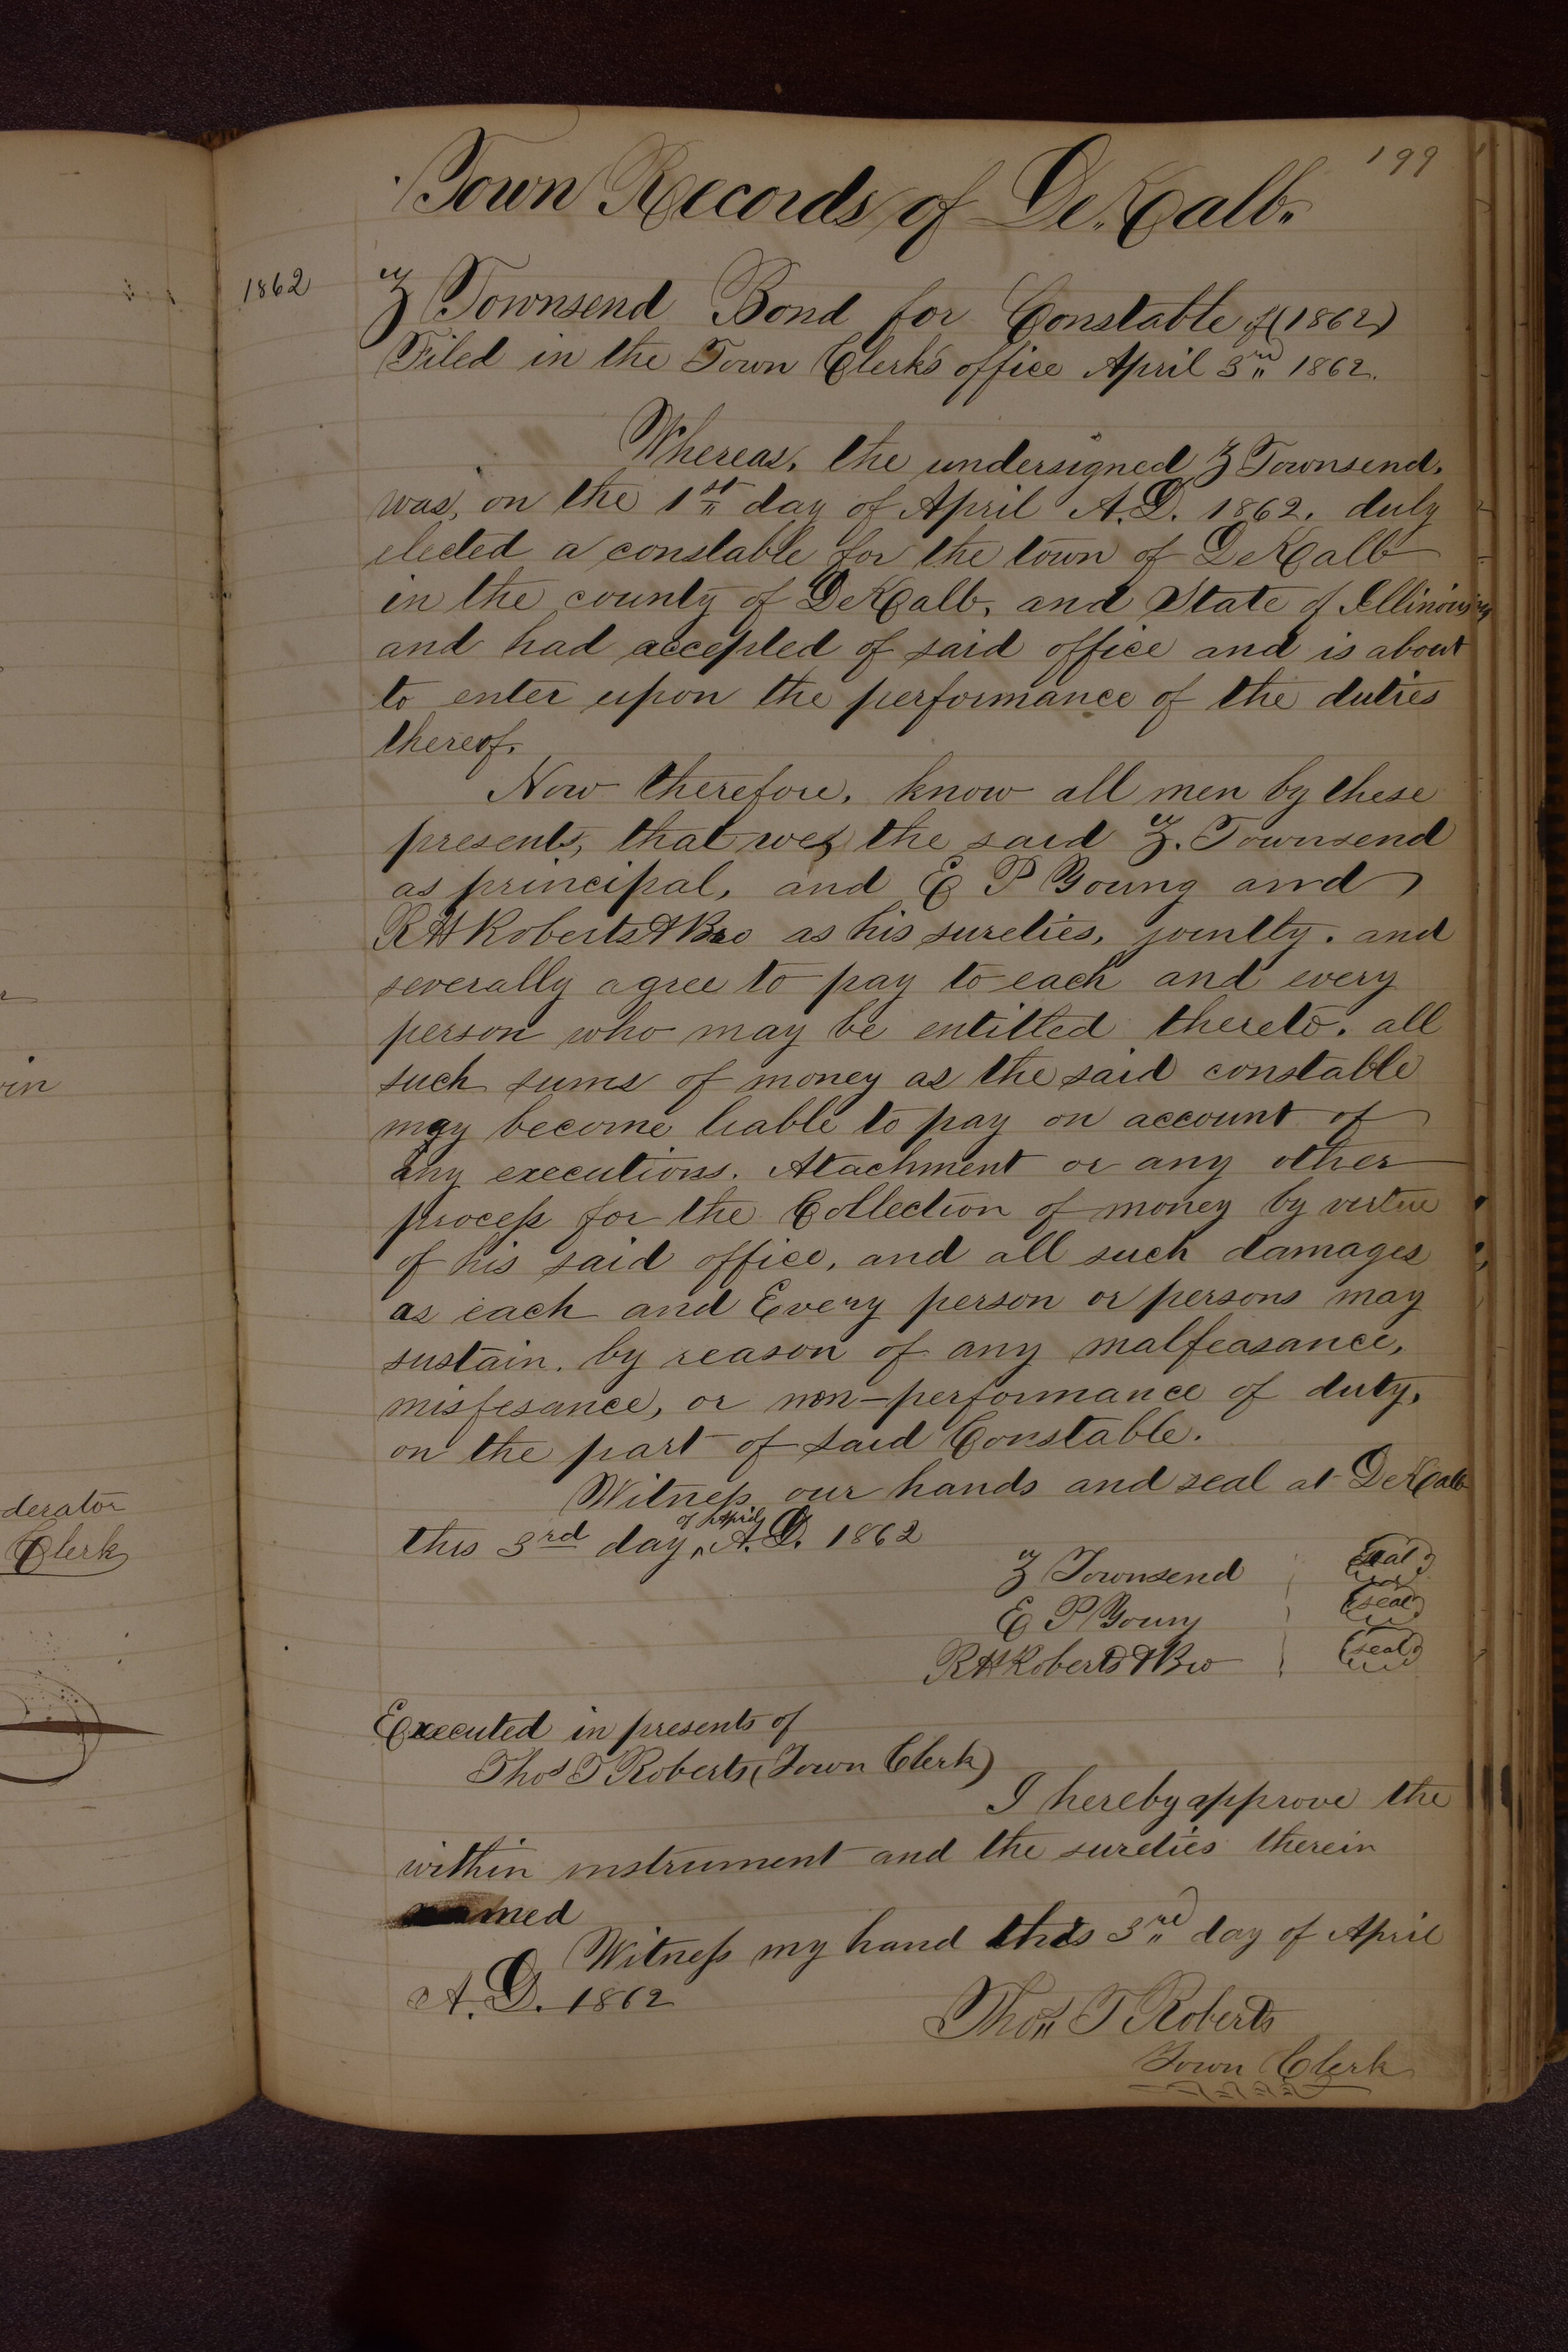 199
Town Records of De.Kalb.
1862
Z Townsend Bond for Constable of (1862)
Filed in the Town Clerks office April 3rd 1862.
Whereas, the undersigned Z Townsend,
was, on the 1st day of April A.D. 1862. duly
elected a constable for the town of DeKalb
in the county of DeKalb, and State of Illinois
and had accepted of said office and is about
to enter upon the performance of the duties
thereof.
Now therefore, know all men by these
presents, that we, the said Z. Townsend
as principal, and E P Young and
R H Roberts & Bro as his sureties, jointly. and
severally agree to pay to each and every
person who may be entitled thereto. all
such sums of money as the said constable
may become liable to pay on account of
any executions. Atachment or any other
process for the Collection of money by virtue
of his said office, and all such damages
as each and Every person or persons may
sustain. by reason of any malfeasance,
misfesance, or non-performance of duty,
on the part of said Constable.
Witness our hands and seal at DeKalb
this 3rd day of April A.D. 1862
Z Townsend (seal)
E P Young (seal)
R H Roberts & Bro (seal)
Executed in presents of
Thos T Roberts (Town Clerk)
I hereby approve the
within instrument and the sureties therein
named
Witness my hand this 3rd day of April
A.D. 1862
Thos T Roberts
Town Clerk
in
derator
Clerk